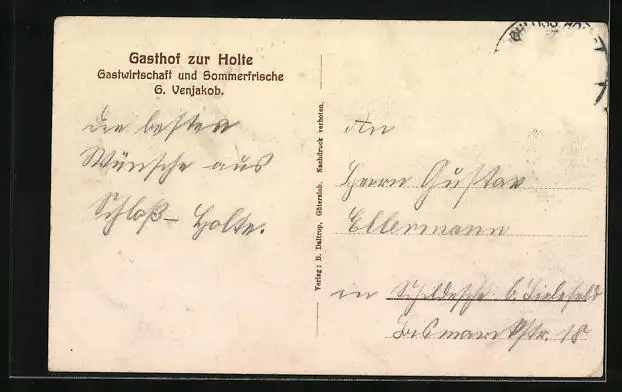 Gasthof zur Holte
Gastwirtschaft und Sommerfrische
G. Venjakob.
die besten
Wünsche aus
Schloß-Holte.
Verlag: R. Daltrop, Gütersloh. Nachdruck verboten.
An
Herrn Gustav
Ellermann
in Schildesche b. Bielefeld
Bismarckstr. 18